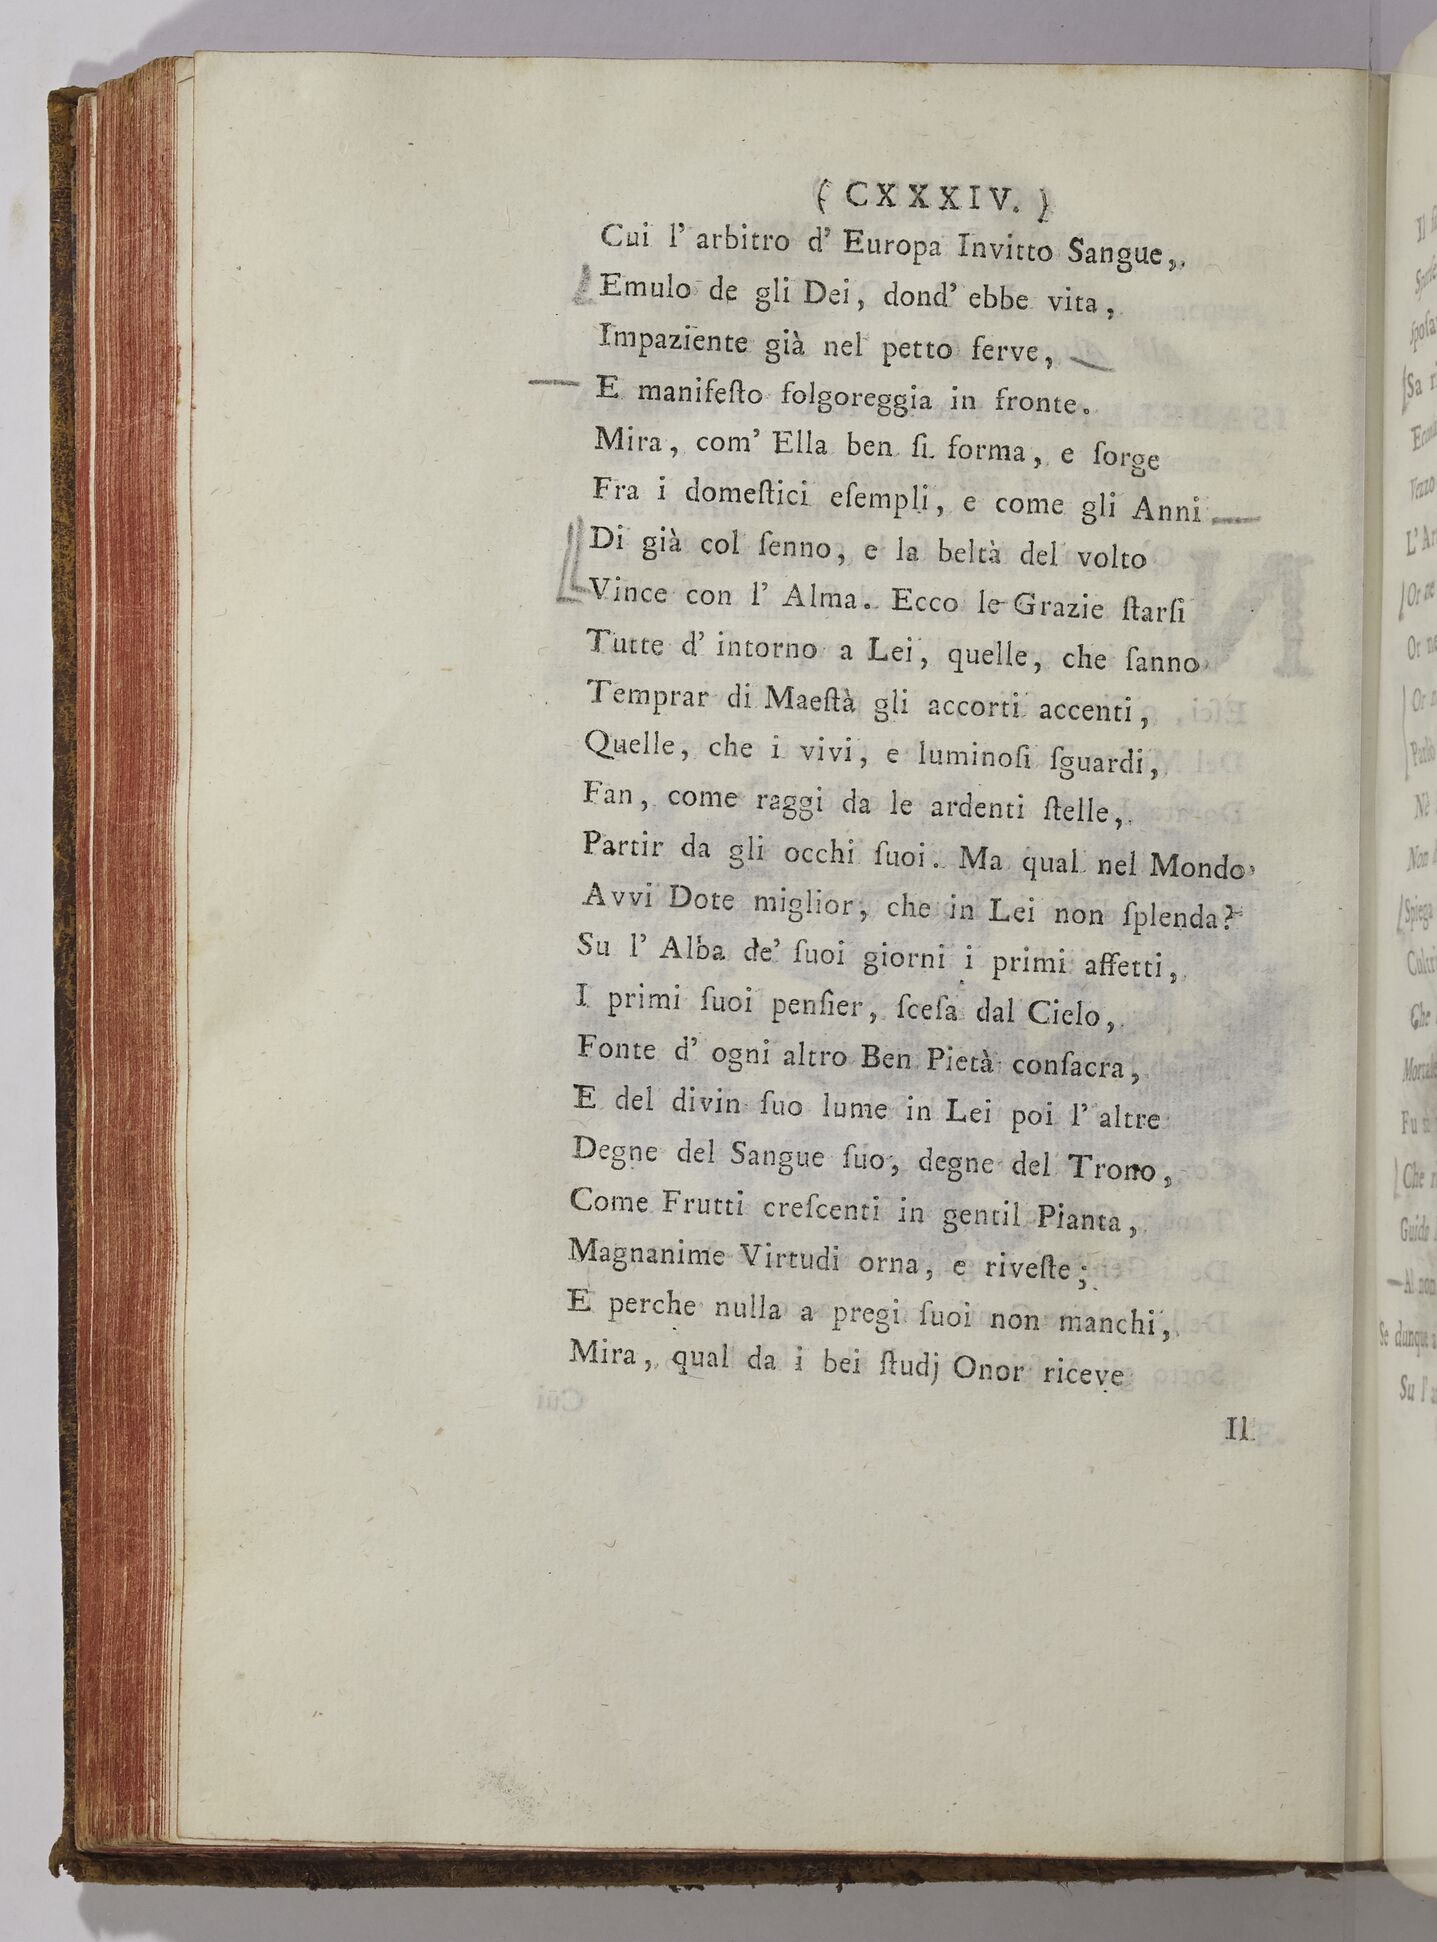 ( CXXXIV. )
Cui l' arbitro d' Europa Invitto Sangue,
Emulo de gli Dei, dond' ebbe vita,
Impaziente già nel petto ferve,
E manifeſto folgoreggia in fronte.
Mira, com' Ella ben ſi forma, e ſorge
Fra i domeſtici eſempli, e come gli Anni
Di già col ſenno, e la beltà del volto
Vince con l' Alma. Ecco le Grazie ſtarſi
Tutte d' intorno a Lei, quelle, che ſanno
Temprar di Maeſtà gli accorti accenti,
Quelle, che i vivi, e luminoſi ſguardi,
Fan, come raggi da le ardenti ſtelle,
Partir da gli occhi ſuoi. Ma qual nel Mondo
Avvi Dote miglior, che in Lei non ſplenda?
Su l' Alba de' ſuoi giorni i primi affetti,
I primi ſuoi penſier, ſceſa dal Cielo,
Fonte d' ogni altro Ben Pietà conſacra,
E del divin ſuo lume in Lei poi l' altre
Degne del Sangue ſuo, degne del Trono,
Come Frutti creſcenti in gentil Pianta,
Magnanime Virtudi orna, e riveſte;
E perche nulla a pregi ſuoi non manchi,
Mira, qual da i bei ſtudj Onor riceve
Il